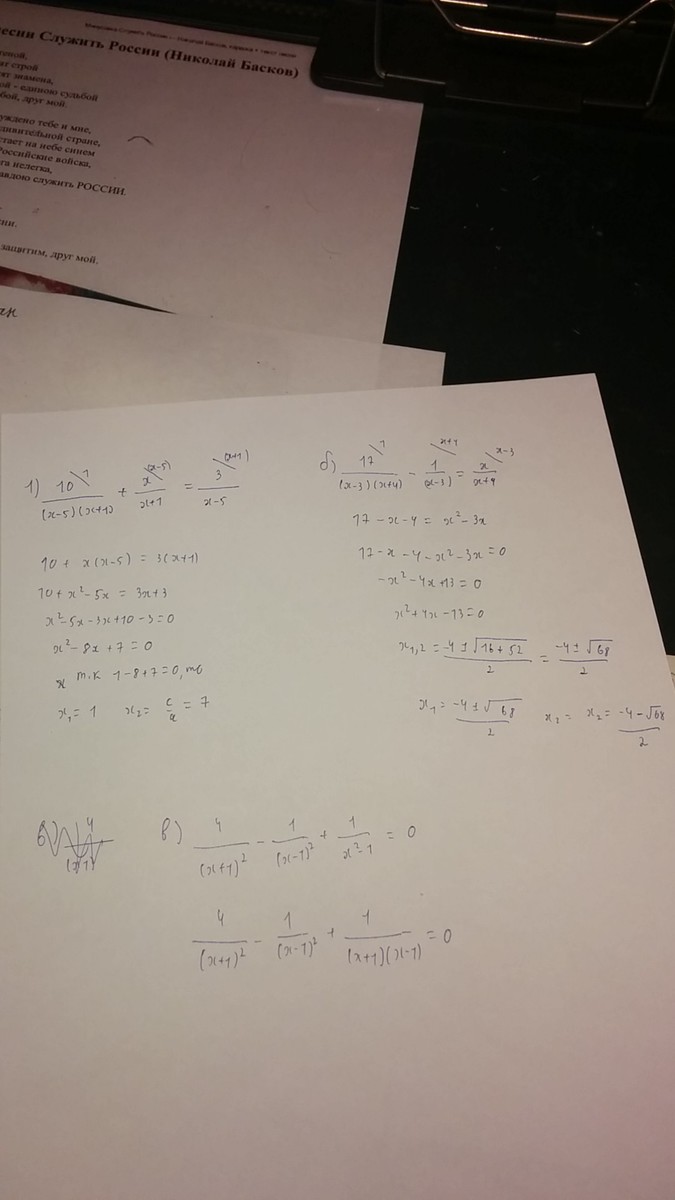 есни Служить России (Николай Басков)
ат строй
ят знамена,
ой - единою судьбой
бой, друг мой.
уждено тебе и мне,
дивительной стране,
стает на небе синем
Российские войска,
га нелегка,
авдою служить РОССИИ.
ни.
защитим, друг мой.
ан
1) 10^1/((x-5)(x+1)) + x^(x-5)/(x+1) = 3^(x+1)/(x-5)
10 + x(x-5) = 3(x+1)
10 + x² - 5x = 3x + 3
x² - 5x - 3x + 10 - 3 = 0
x² - 8x + 7 = 0
т.к 1-8+7=0, то
x₁ = 1 x₂ = c/a = 7
б) 17^1/((x-3)(x+4)) - 1^(x+4)/(x-3) = x^(x-3)/(x+4)
17 - x - 4 = x² - 3x
17 - x - 4 - x² - 3x = 0
-x² - 4x + 13 = 0
x² + 4x - 13 = 0
x₁,₂ = (-4 ± √(16 + 52))/2 = (-4 ± √68)/2
x₁ = (-4 ± √68)/2 x₂ = x₂ = (-4 - √68)/2
в) 4/(x+1)² - 1/(x-1)² + 1/(x²-1) = 0
4/(x+1)² - 1/(x-1)² + 1/((x+1)(x-1)) = 0